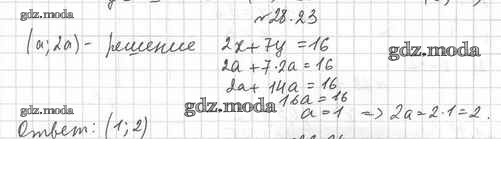 gdz.moda
№28.23
(a; 2a) - решение 2x+7y=16
gdz.moda
2a+7·2a=16
2a+14a=16
gdz.moda
16a=16
gdz.moda
a=1 => 2a=2·1=2.
Ответ: (1; 2)